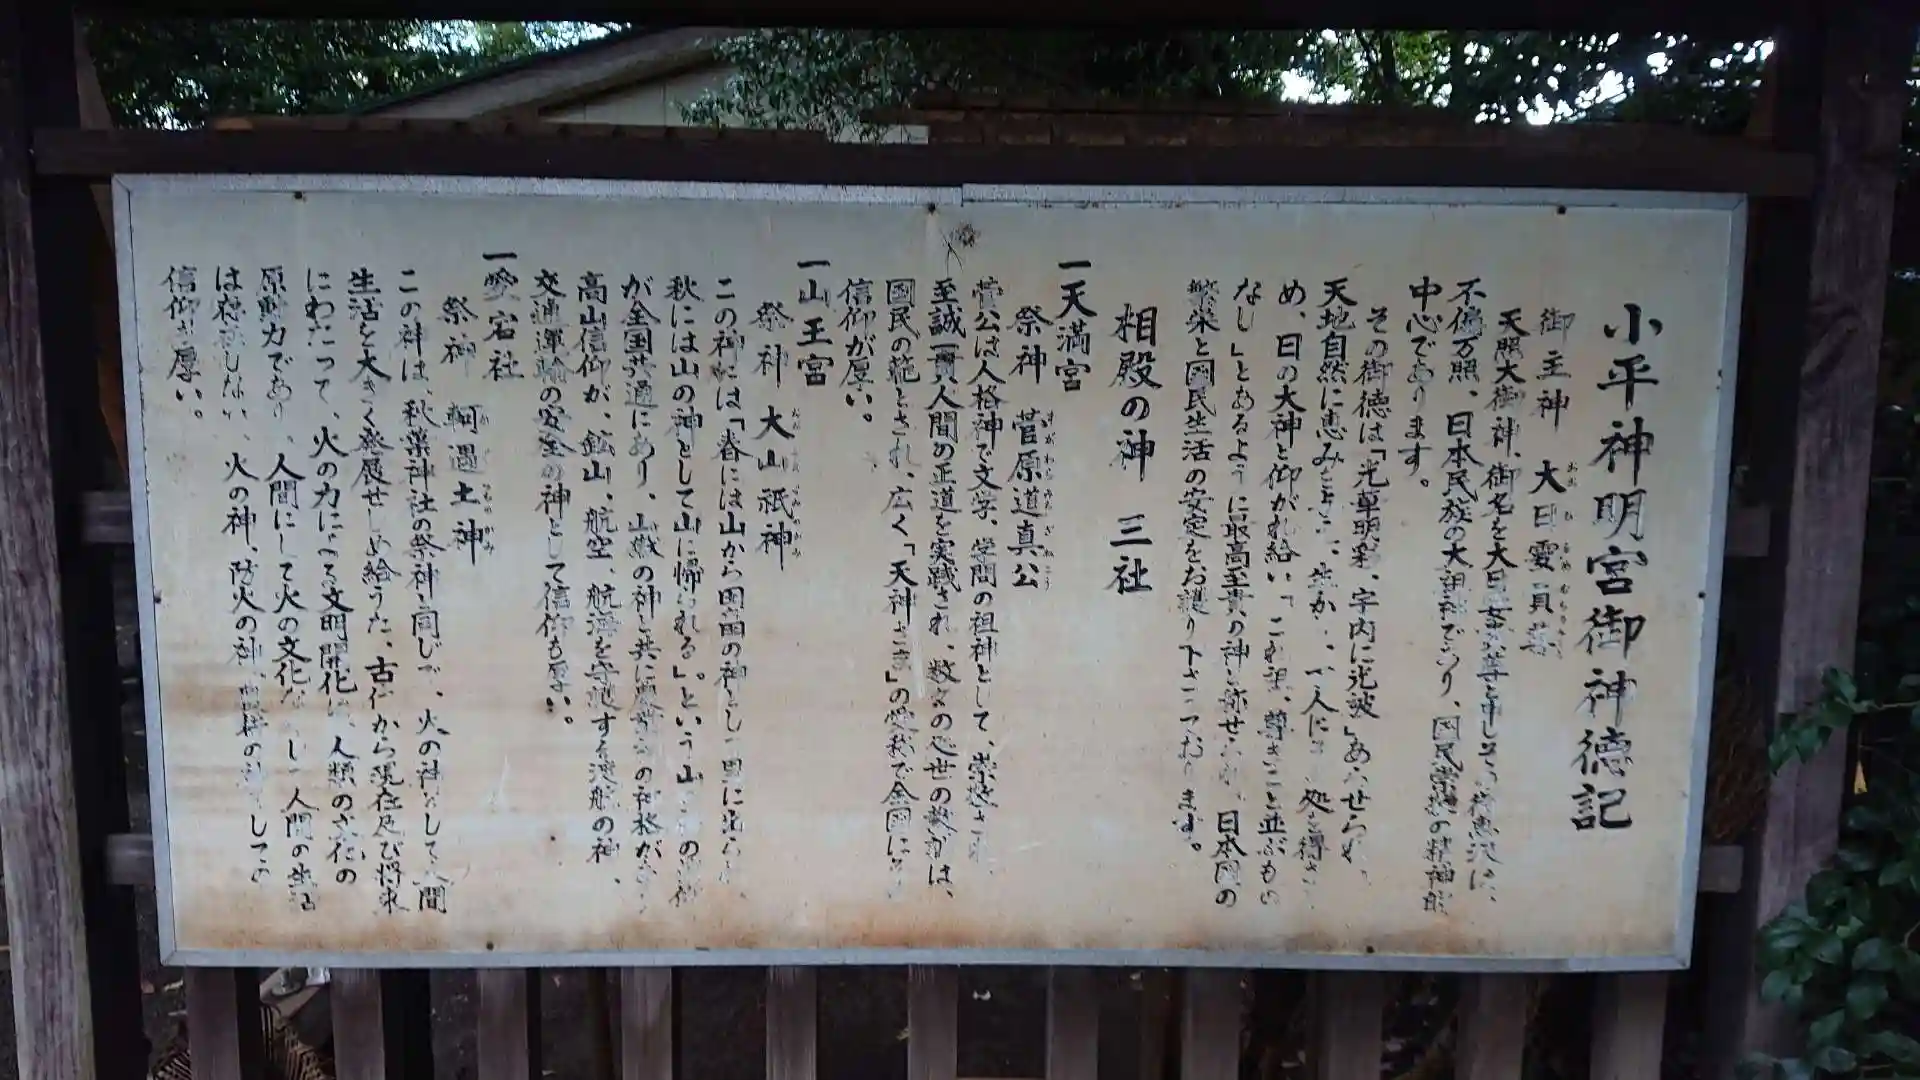 小平神明宮御神徳記
御主神 大日孁貴
天照大御神、御名を大日孁貴尊と申し
不偏万照、日本民族の大祖神であり、国民崇敬の精神的
中心であります。
その御徳は「光華明彩、宇内に光被」あらせられ、
天地自然に恵みを 生か 一人に 処を得さ
め、日の大神と仰がれ給い、「これ 尊きこと並ぶもの
なし」とあるように最高至貴の神と称せられ、日本国の
繁栄と国民生活の安定をお護り下さっております。
相殿の神 三社
一天満宮
祭神 菅原道真公
菅公は人格神で文学、学問の祖神として、崇敬され、
至誠一貫人間の正道を実践され、数々の処世の教訓は、
国民の範とされ、広く「天神さま」の愛称で全国に
信仰が厚い。
一山王宮
祭神 大山祇神
この神には「春には山から田畠の神として里に出られ、
秋には山の神として山に帰られる」。という山 の信仰
が全国共通にあり、山嶽の神と共に農業 の神格があり
高山信仰が、鉱山、航空、航海を守護する渡航の神、
交通運輸の安全の神として信仰も厚い。
一愛宕社
祭神 軻遇土神
この神は、秋葉神社の祭神と同じで、火の神として人間
生活を大きく発展せしめ給うた、古代から現在及び将来
にわたって、火の力による文明開化は、人類の文化の
原動力であり、人間にして火の文化な し 人間の生活
は存続しない、火の神、防火の神、 の神として
信仰も厚い。